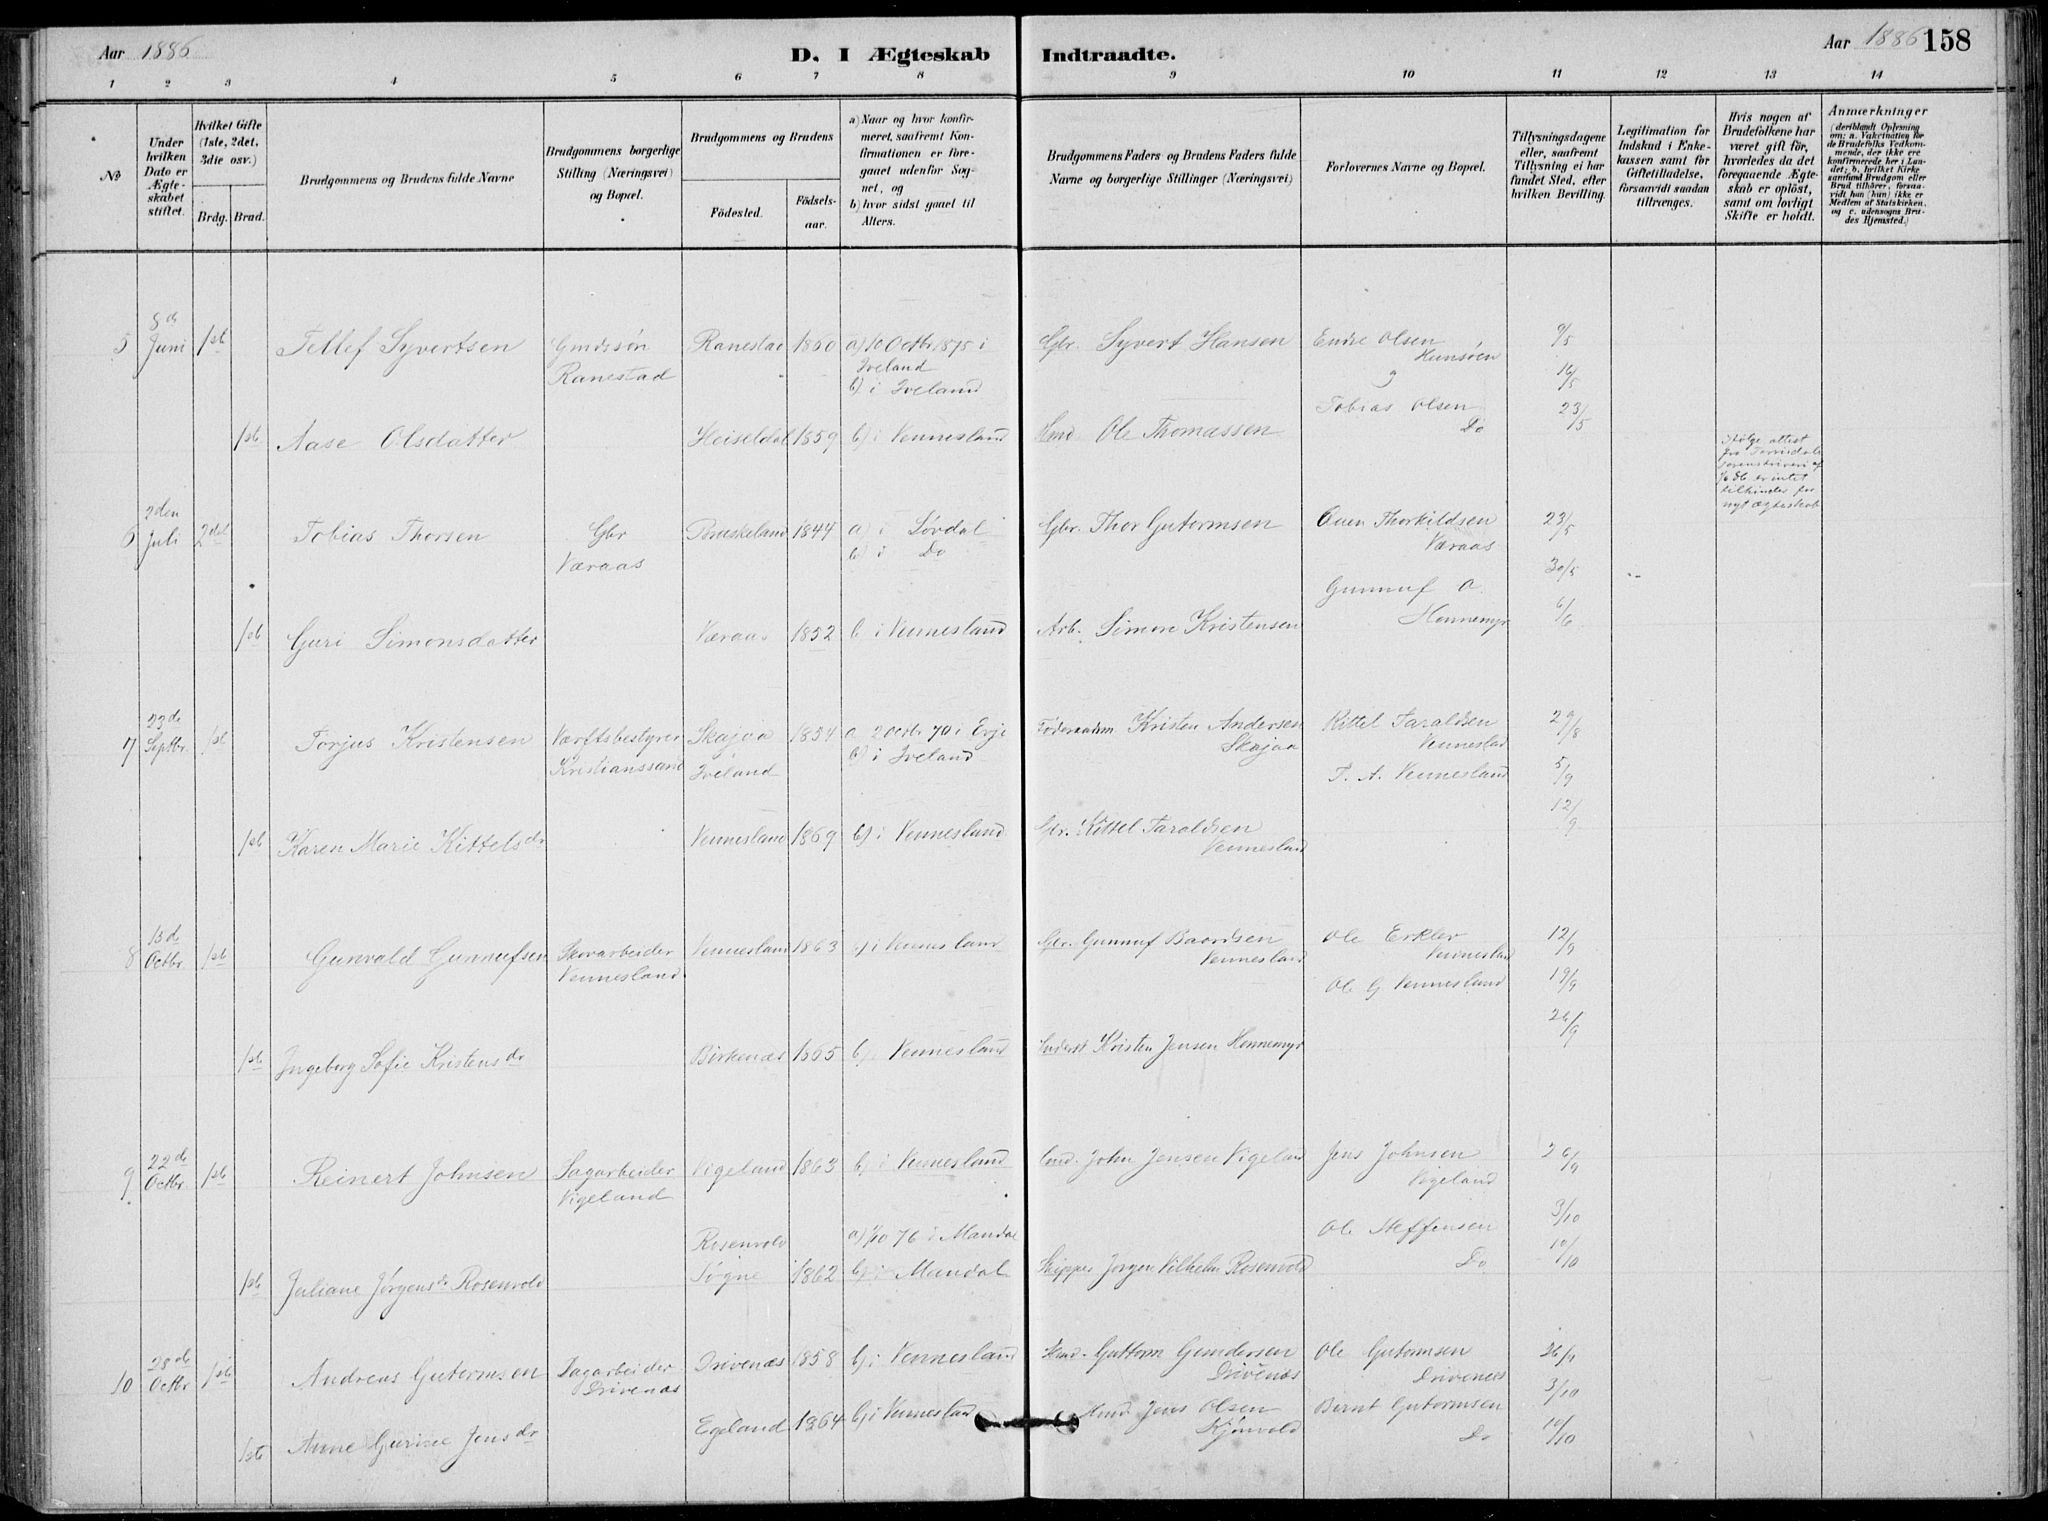 Aar 1886
D. I Ægteskab
Indtraadte.
Aar 1886 158
1 2 3 4 5 6 7 8 9 10 11 12 13 14
No
Under hvilken Dato er Ægteskabet stiftet.
Hvilket Gifte (1ste, 2det, 3die osv.)
Brdg. Brud.
Brudgommens og Brudens fulde Navne
Brudgommens borgerlige Stilling (Næringsvei) og Bopæl.
Brudgommens og Brudens
Fødested.
Fødselsaar.
a) Naar og hvor konfirmeret, saafremt Konfirmationen er foregaaet udenfor Sognet, og
b) hvor sidst gaaet til Alters.
Brudgommens Faders og Brudens Faders fulde Navne og borgerlige Stillinger (Næringsvei)
Forlovernes Navne og Bopæl.
Tillysningsdagene eller, saafremt Tillysning ei har fundet Sted, efter hvilken Bevilling.
Legitimation for Indskud i Enkekassen samt for Giftetilladelse, forsaavidt saadan tiltrænges.
Hvis nogen af Brudefolkene har været gift før, hvorledes da det foregaaende Ægteskab er opløst, samt om lovligt Skifte er holdt.
Anmærkninger
(deriblandt Oplysning om: a. Vakcination for de Brudefolks Vedkommende, der ikke ere konfirmerede her i Landet; b. hvilket Kirkesamfund Brudgom eller Brud tilhører, forsaavidt han (hun) ikke er Medlem af Statskirken, og c. udensogns Brudes Hjemsted.)
5 8de Juni 1st Tellef Syvertsen Gmdssøn Ranestad Ranestad 1860 a) 10 Octbr 1875 i Iveland
b) i Iveland
Gbr. Syvert Hansen
Endre Olsen Hunsøen
9/5
16/5
1st Aase Olsdatter Heiseldal 1859 b) i Vennesland Hmd Ole Thomassen
Tobias Olsen Do
23/5
ifølge attest fra
er intet
tilhinder for
nyt ægteskab
6 2den Juli 2det Tobias Thorsen Gbr Væraas Bruskeland 1844 a) i Løvdal
b) i Do
Gbr. Thor Gutormsen
Ouen Thorkildsen Væraas
23/5
30/5
Gunnuf O. Honnemyr
6/6
1st Guri Simonsdatter Væraas 1852 b i Vennesland Arb. Simon Kristensen
7 23de Septbr. 1st Torjus Kristensen Værftsbestyrer Kristianssand Skajaa Iveland 1854 a 2 octbr 70 i Evje
b) i Iveland
Føderaadsm Kristen Andersen Skajaa
Kittel Taraldsen Vennesland
29/8
T. A. Vennesland
5/9
12/9
1st Karen Marie Kittelsdr Vennesland 1869 b) i Vennesland Gbr. Kittel Taraldsen Vennesland
8 13de Octbr. 1st Gunvald Gunnufsen Skovarbeider Vennesland Vennesland 1863 b) i Vennesland Gbr. Gunnuf Baardsen Vennesland
Ole Erklev Vennesland
12/9
Ole G Vennesland
19/9
26/9
1st Ingeborg Sofie Kristensdr Birkenæs 1865 b) i Vennesland Inderst Kristen Jensen Honnemyr
9 22de Octbr. 1st Reinert Johnsen Sagarbeider Vigeland Vigeland 1863 b) i Vennesland John Jensen Vigeland
Jens Johnsen Vigeland
26/9
Ole Steffensen Do
3/10
10/10
1st Juliane Jørgensdr Rosenvold Rosenvold Søgne 1862 a) 1/10 76 i Mandal
b) i Mandal
Skipper Jørgen Vilhelm Rosenvold
10 28de Octbr 1st Andreas Gutormsen Sagarbeider Drivenæs Drivenæs 1858 b) i Vennesland Hmd. Guttorm Gundersen Drivenæs
Ole Gutormsen Drivenes
26/9
3/10
1ste Anne Gurine Jensdr Egeland 1864 b) i Vennesland Hmd. Jens Olsen Kjønvold
Bernt Gutormsen Do
10/10